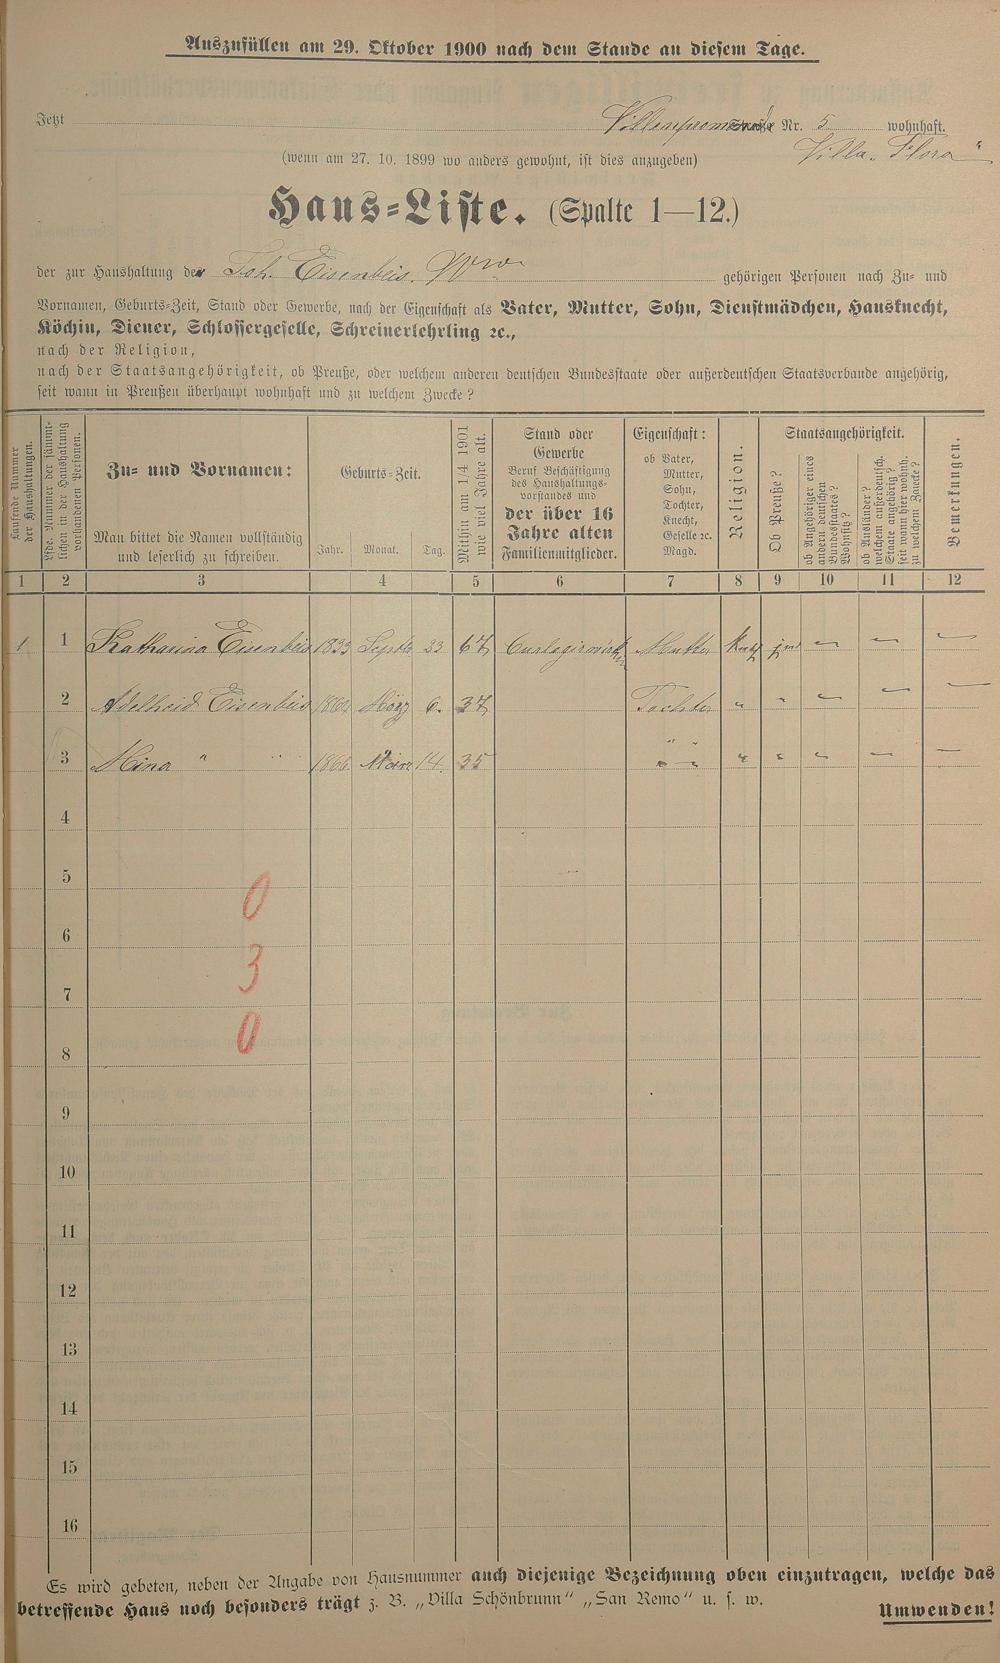 Auszufüllen am 29. Oktober 1900 nach dem Stande an diesem Tage.
Jetzt Villenpromenade Nr. 5 wohnhaft.
Villa „Flora"
(wenn am 27. 10. 1899 wo anders gewohnt, ist dies anzugeben)
Haus=Liste. (Spalte 1—12.)
der zur Haushaltung der Joh. Eisenbeis Wwe gehörigen Personen nach Zu= und
Vornamen, Geburts=Zeit, Stand oder Gewerbe, nach der Eigenschaft als Vater, Mutter, Sohn, Dienstmädchen, Hausknecht,
Köchin, Diener, Schlossergeselle, Schreinerlehrling ꝛc.,
nach der Religion,
nach der Staatsangehörigkeit, ob Preuße, oder welchem anderen deutschen Bundesstaate oder außerdeutschen Staatsverbande angehörig,
seit wann in Preußen überhaupt wohnhaft und zu welchem Zwecke?
Laufende Nummer der Haushaltungen.
Lfde. Nummer der sämmtlichen in der Haushaltung vorhandenen Personen.
Zu= und Vornamen:
Man bittet die Namen vollständig
und leserlich zu schreiben.
Geburts=Zeit.
Jahr. Monat. Tag.
Mithin am 1/4 1901 wie viel Jahre alt.
Stand oder
Gewerbe
Beruf Beschäftigung
des Haushaltungs-
vorstandes und
der über 16
Jahre alten
Familienmitglieder.
Eigenschaft:
ob Vater,
Mutter,
Sohn,
Tochter,
Knecht,
Geselle ꝛc.
Magd.
Religion.
Staatsangehörigkeit.
Ob Preuße?
ob Angehöriger eines andern deutschen Bundesstaates? Wohnsitz?
ob Ausländer? welchem außerdeutsch. Staate angehörig? seit wann hier wohnh. zu welchem Zwecke?
Bemerkungen.
1 2 3 4 5 6 7 8 9 10 11 12
1 1 Katharina Eisenbeis 1833 Septb 23 67 Mutter kath — — —
2 Adelheid Eisenbeis 1864 März 6. 37 Tochter " " — — —
3 Mina " " 1866 März 14. 35 " " " " — — —
4
5
0
6
3
7
0
8
9
10
11
12
13
14
15
16
Es wird gebeten, neben der Angabe von Hausnummer auch diejenige Bezeichnung oben einzutragen, welche das
betreffende Haus noch besonders trägt z. B. „Villa Schönbrunn" „San Remo" u. s. w.
Umwenden!